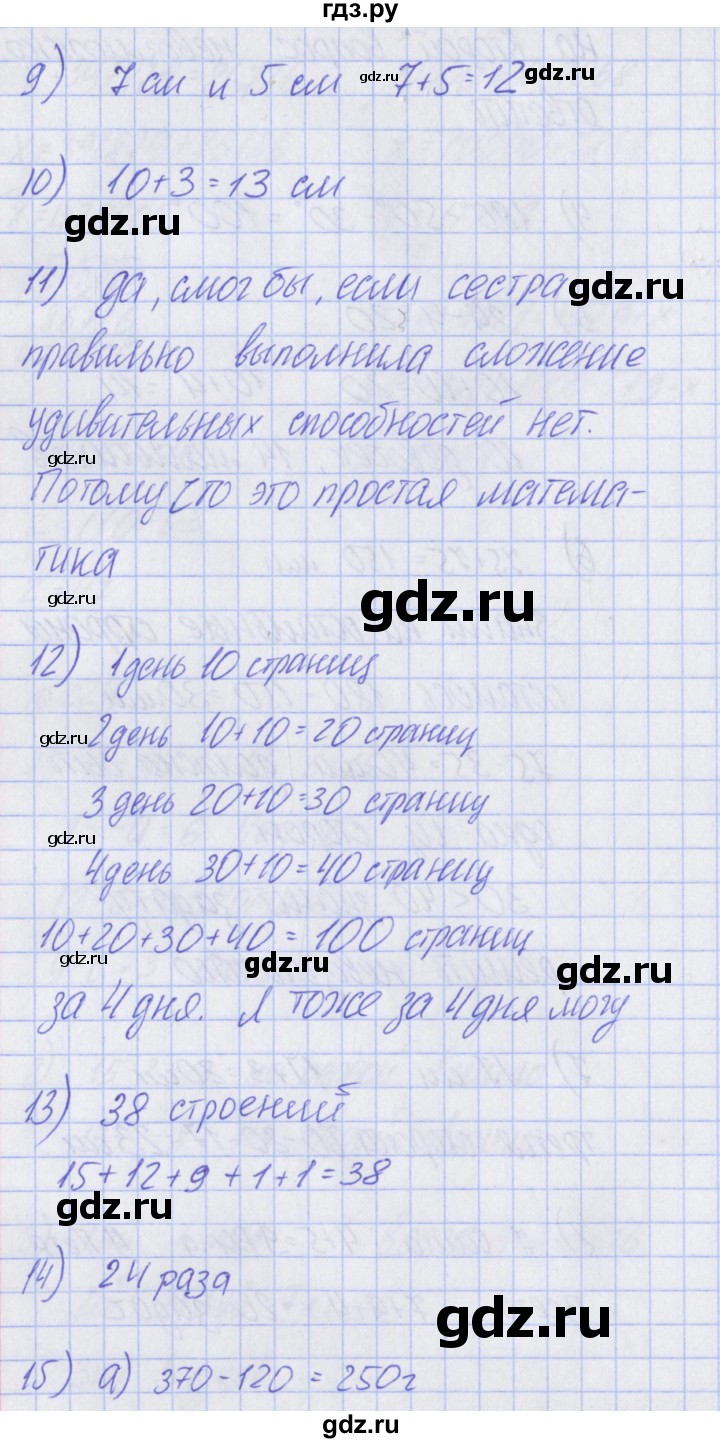 гдз.ру
9) 7 см и 5 см gdz.ru 7+5=12 gdz.ru
10) 10+3=13 см
gdz.ru
11) да, смог бы, если сестра gdz.ru
правильно выполнила сложение
удивительных способностей нет.
gdz.ru
Потому что это простая матема-
тика
gdz.ru
gdz.ru
12) 1 день 10 страниц
gdz.ru 2 день 10+10=20 страниц
3 день 20+10=30 страниц
gdz.ru
4 день 30+10=40 страниц
10+20+30+40=100 страниц
gdz.ru gdz.ru gdz.ru
за 4 дня. Я тоже за 4 дня могу
13) 38 строений
15+12+9+1+1=38
gdz.ru
14) 24 раза
gdz.ru
15) а) 370-120=250г
gdz.ru